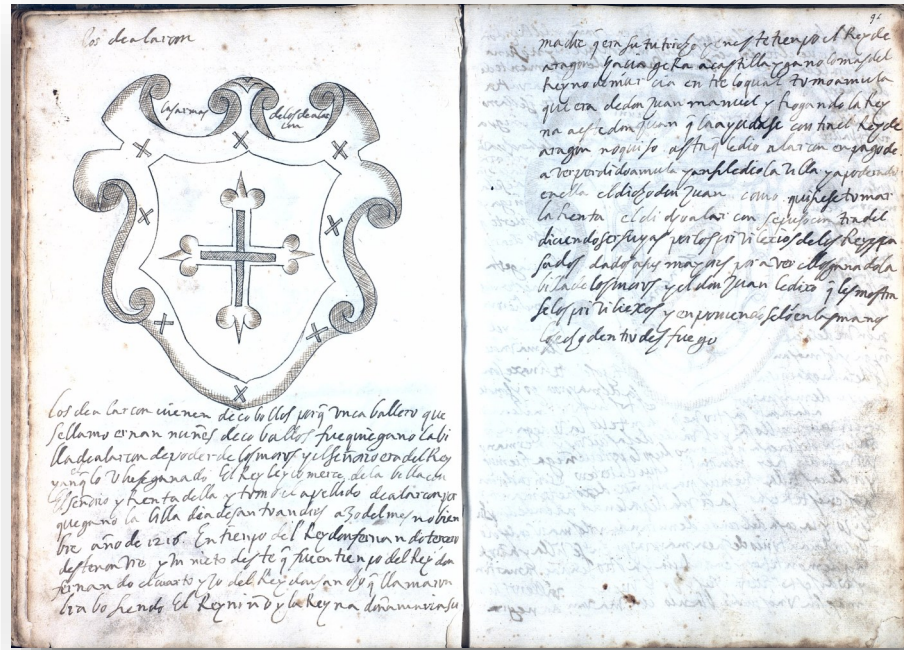 los de alarcon
las armas
de los de alar
con
los de alarcon vienen de çoballos porq̃ vn caballero que
se llamo ernan nuñes de çoballos fue quiẽ gano la vi
lla de alarcon de poder de los moros y el señorio era del Rey
y anq̃ lo vbiese ganado El Rey le yço merçed de la villa con
el señorio y Renta della y tomo el apellido de alarcon por
que gano la villa dia de san t andres a 30 del mes nobien
bre año de 1216. En tienpo del Rey don fernando terçero
deste nonbre y vn nieto deste q̃ fue en tienpo del Rey don
fernando el cuarto yjo del Rey don sancho q̃ llamaron
brabo siendo El Rey niño y la Reyna doña maria su
96
madre q̃ era su tutriz y en este tienpo el Rey de
aragon haçia gera a castilla y gano lo mas del
Reyno de murçia entre lo qual tomo a mula
que era de don Juan manuel y Rogando la Rey
na a este don Juan q̃ la ayudase contra el Rey de
aragon no quiso asta q̃ le dio a alarcon en pago de
aver perdido a mula y ansi le dio la villa y apoderado
en ella el dicho don Juan como quisiese tomar
la Renta el dicho alarcon se puso contra el
diçiendo ser suya por los previlexios de los Reyes pa
sados dados a sus mayores por aver ellos ganado la
villa de los moros y el don Juan le dixo q̃ les mostra
se los previlexios y en poniendoselos en las manos
los echo dentro del fuego